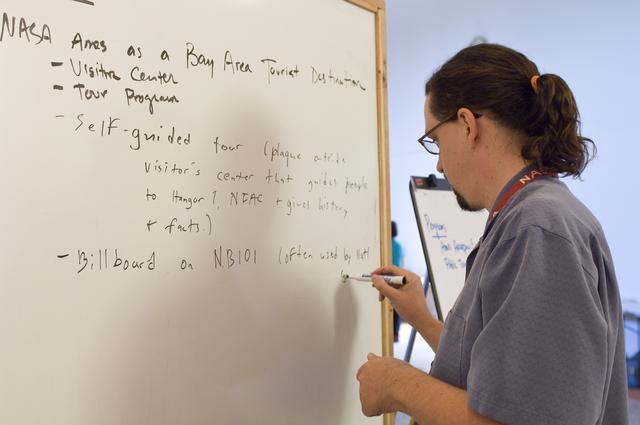 NASA Ames as a Bay Area Tourist Destination
- Visitor Center
- Tour Program
- Self-guided tour (plaque outside
visitor's center that guides people
to Hangar 1, NFAC + gives history
+ facts.)
- Billboard on NB101 (often used by Natl
NASA
Program